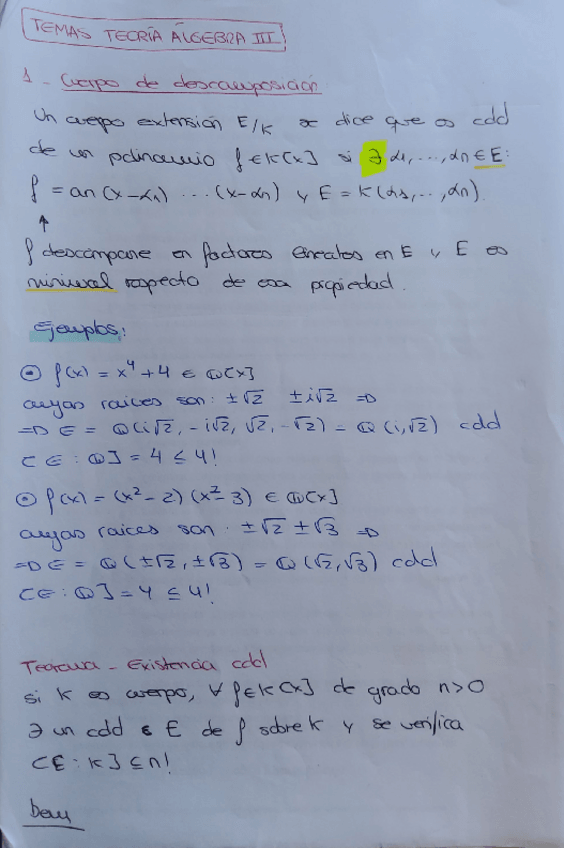 TEMAS TEORÍA ÁLGEBRA III
1 - Cuerpo de descomposición
Un cuerpo extensión E/K se dice que es cdd
de un polinomio f ∈ K[x] si ∃ α1, ..., αn ∈ E:
f = an (x-α1) ... (x-αn) y E = K(α1, .., αn).
↑
f descompone en factores lineales en E y E es
minimal respecto de esa propiedad.
Ejemplos:
⊙ f(x) = x⁴ + 4 ∈ Q[x]
cuyas raices son: ±√2 ±i√2 ⇒
⇒ E = Q(i√2, -i√2, √2, -√2) = Q(i,√2) cdd
[E : Q] = 4 ≤ 4!
⊙ f(x) = (x² - 2) (x² - 3) ∈ Q[x]
cuyas raices son: ±√2 ±√3 ⇒
⇒ E = Q(±√2, ±√3) = Q(√2, √3) cdd
[E : Q] = 4 ≤ 4!
Teorema - Existencia cdd
si K es cuerpo, ∀ f ∈ K[x] de grado n>0
∃ un cdd E de f sobre K y se verifica
[E : K] ≤ n!
Dem